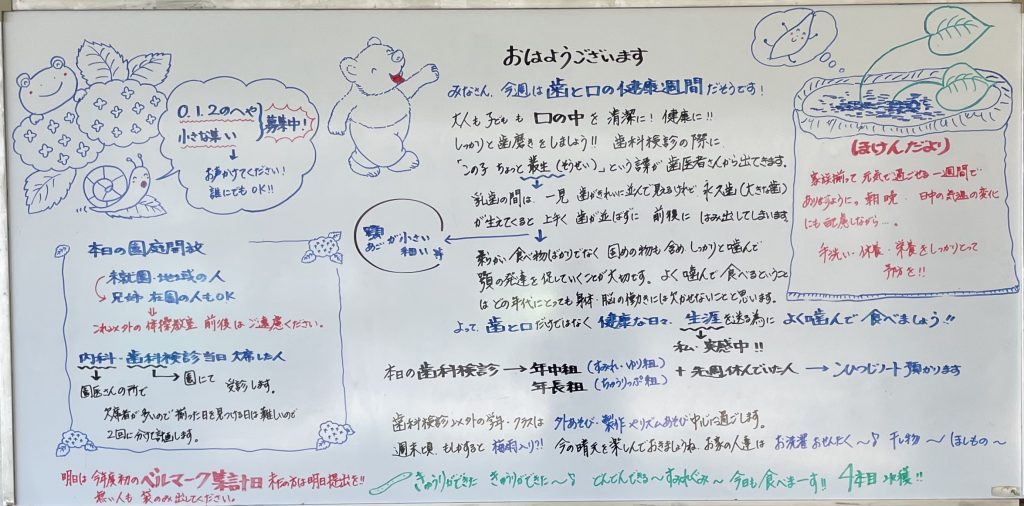 おはようございます
みなさん、今週は歯と口の健康週間だそうです！
大人も子どもも口の中を清潔に！健康に!!
しっかりと歯磨きをしましょう!! 歯科検診の際に
「この子ちょっと叢生(そうせい)」という言葉が歯医者さんから出てきます。
乳歯の間は、一見 歯がきれいに並んで
永久歯(大きな歯)
が生えてくると上手く歯が並ばずに 前後に はみ出してしまいます。
顎が小さい
あご
細い 等
食べ物ばかりでなく 固めの物も含め しっかりと噛んで
顎の発達を促していくことが大切です。よく噛んで食べるということ
はどの年代にとっても身体・脳の働きには欠かせないことと思います。
よって、歯と口だけではなく 健康な日々、生涯を送る為に よく噛んで食べましょう!!
私、実感中!!
本日の歯科検診→年中組(すみれ・ゆり組)
年長組(ちゅうりっぷ組)
+先週休んでいた人→こひつじノート預かります
歯科検診以外の学年・クラスは 外あそび・製作やリズムあそび中心に過ごします。
週末頃 もしかすると 梅雨入り?! 今の晴天を楽しんでおきましょうね。お家の人達は お洗濯 おせんたく〜♪ 干し物〜ほしもの〜
0.1.2のへや
小さな集い
募集中！
お声かけてください！
誰にでもOK!!
本日の園庭開放
未就園・地域の人
兄姉 在園の人もOK
これ以外の体操教室 前後はご遠慮ください。
内科・歯科検診当日欠席した人
園医さんの所で
園にて 受診します。
欠席者が多いので揃った日を見つける日は難しいので
2回に分けて計画します。
ほけんだより
家族揃って元気で過ごせる一週間で
ありますように。朝晩・日中の気温の変化
にも配慮しながら…。
手洗い・休養・栄養をしっかりとって
予防を!!
明日は 今年度初のベルマーク集計日 まだの方は明日提出を!!
無い人も 袋のみ出してください。
きゅうりができた きゅうりができた〜♪
すみれぐみ〜 今日も食べまーす!! 4本目 収穫!!